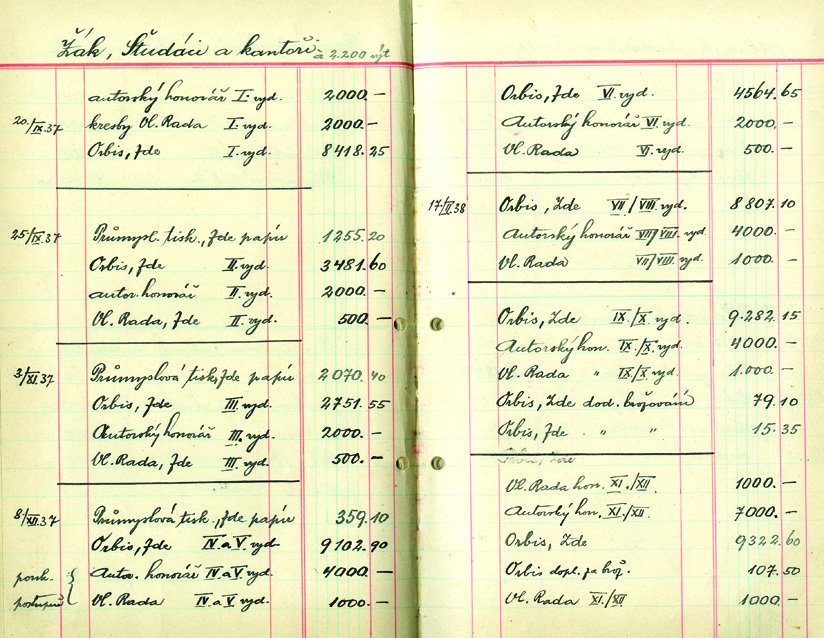 Žák, Študáci a kantoři à 2.200 výt
autorský honorář I. vyd. 2000.—
20/IX.37 kresby Vl. Rada I. vyd. 2000.—
Orbis, Zde I. vyd. 8418.25
25/IX.37 Průmysl. tisk., Zde papír 1255.20
Orbis, Zde II. vyd. 3481.60
autor. honorář II. vyd. 2000.—
Vl. Rada, Zde II. vyd. 500.—
3/XI.37 Průmyslová tisk, Zde papír 2070.40
Orbis, Zde III. vyd. 2751.55
Autorský honorář III. vyd. 2000.—
Vl. Rada, Zde III. vyd. 500.—
8/XII.37 Průmyslová tisk., Zde papír 359.10
Orbis, Zde IV. a V. vyd. 9102.90
Autor. honorář IV. a V. vyd. 4000.—
Vl. Rada IV. a V. vyd. 1000.—
Orbis, Zde VI. vyd. 4564.65
Autorský honorář VI. vyd. 2000.—
Vl. Rada VI. vyd. 500.—
17/II.38 Orbis, Zde VII/VIII. vyd. 8807.10
Autorský honorář VII/VIII. vyd. 4000.—
Vl. Rada VII/VIII. vyd. 1000.—
Orbis, Zde IX./X. vyd. 9.282.15
Autorský hon. IX./X. vyd. 4000.—
Vl. Rada " IX/X vyd. 1.000.—
Orbis, Zde dod. brožování 79.10
Orbis, Zde . " " 15.35
Orbis, Zde
Vl. Rada hon. XI./XII. 1000.—
Autorský hon. XI./XII. 7000.—
Orbis, Zde 9322.60
Orbis dopl. za brož. 107.50
Vl. Rada XI./XII 1000.—